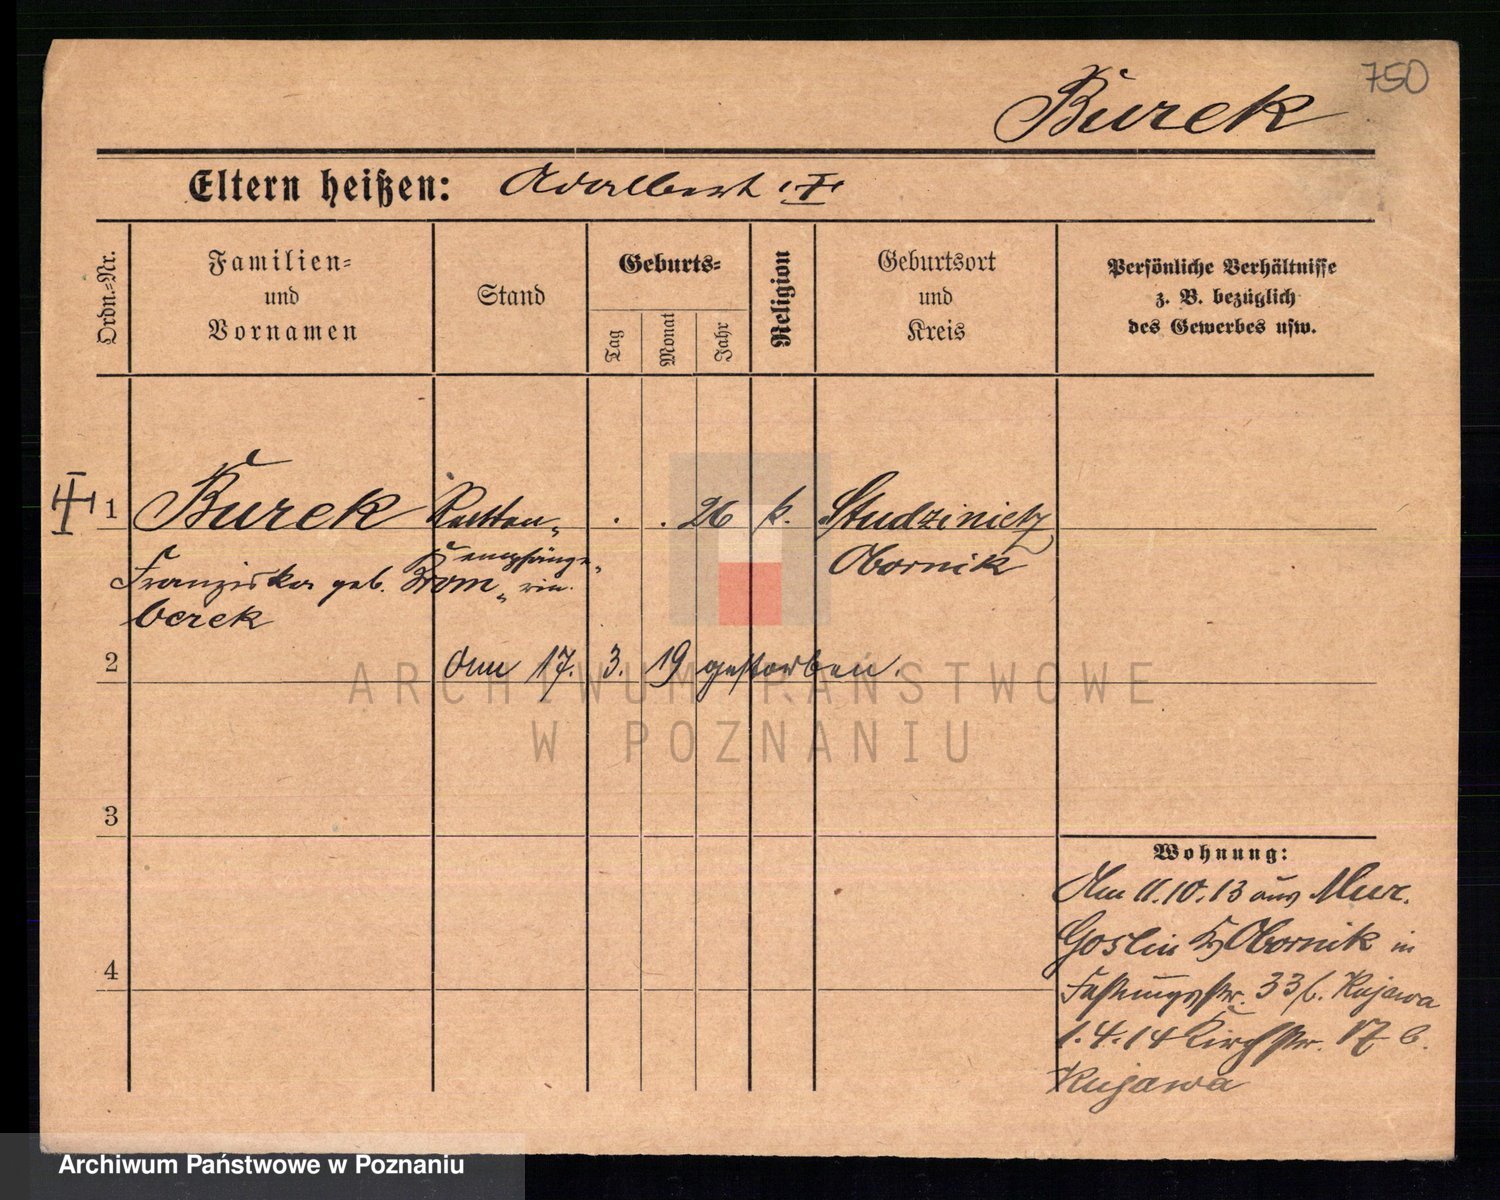 750
Burek
Eltern heißen: Adalbert
Ordn.-Nr.
Familien-
und
Vornamen
Stand
Geburts-
Tag
Monat
Jahr
Religion
Geburtsort
und
Kreis
Persönliche Verhältnisse
z. B. bezüglich
des Gewerbes usw.
1 Burek Renten- . . 26 k. Studzinietz
empfänge- Obornik
Franziska geb. Brom- rin.
berek
2 Am 17. 3. 19 gestorben.
3
4
Wohnung:
Am 11.10.13 aus Mur.
Goslin Kr Obornik in
Festungsstr. 33 b. Kujawa
1.4.14 Kirchstr. 17 b.
Kujawa
ARCHIWUM PAŃSTWOWE
W POZNANIU
Archiwum Państwowe w Poznaniu